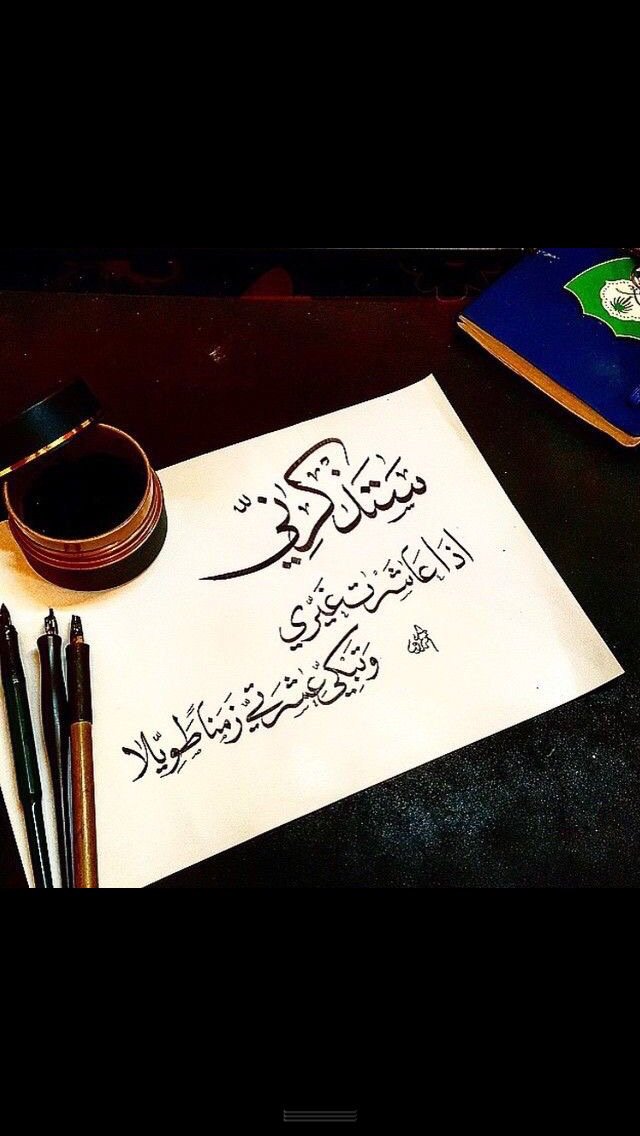 ستذكرني
اذا عاشرت غيري
وتبكي عشرتي زمنا طويلا